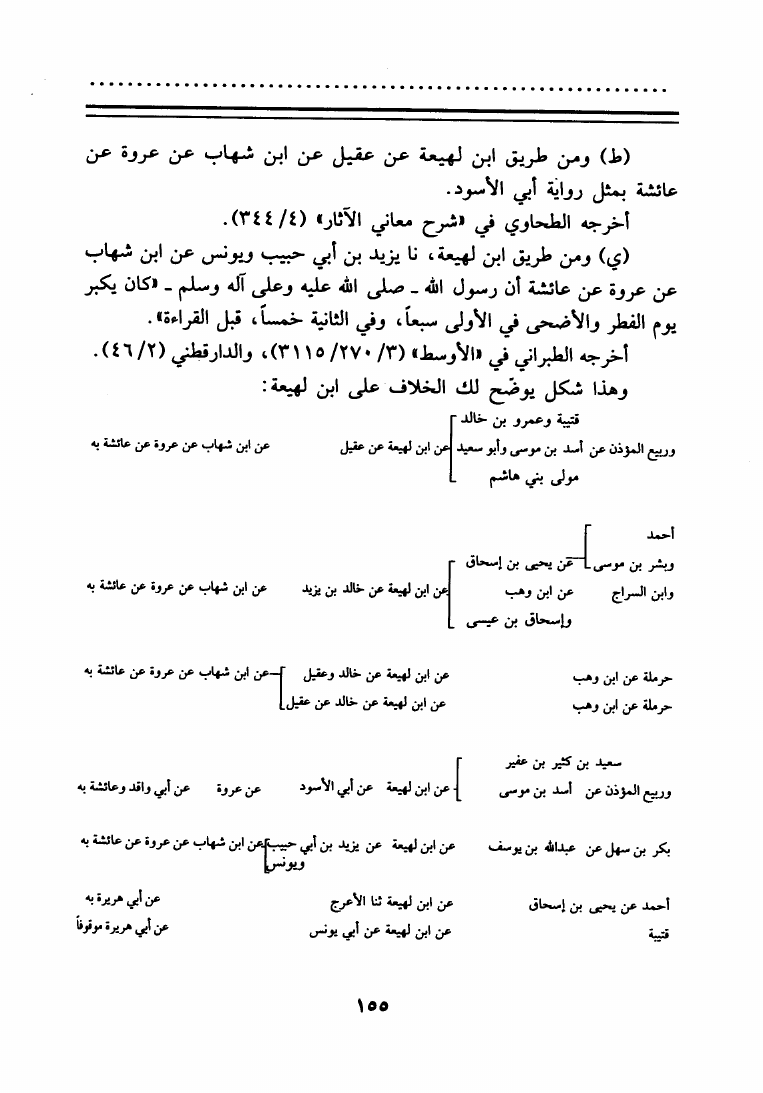 (ط) ومن طريق ابن لهيعة عن عقيل عن ابن شهاب عن عروة عن
عائشة بمثل رواية أبي الأسود.
أخرجه الطحاوي في «شرح معاني الآثار» (٣٤٤/٤).
(ي) ومن طريق ابن لهيعة، نا يزيد بن أبي حبيب ويونس عن ابن شهاب
عن عروة عن عائشة أن رسول الله ـ صلى الله عليه وعلى آله وسلم ـ «كان يكبر
يوم الفطر والأضحى في الأولى سبعاً، وفي الثانية خمساً، قبل القراءة».
أخرجه الطبراني في «الأوسط» (٣١١٥/٢٧٠/٣)، والدارقطني (٤٦/٢).
وهذا شكل يوضّح لك الخلاف على ابن لهيعة:
قتيبة وعمرو بن خالد
وربيع المؤذن عن أسد بن موسى وأبو سعيد عن ابن لهيعة عن عقيل عن ابن شهاب عن عروة عن عائشة به
مولى بني هاشم
أحمد
وبشر بن موسى عن يحيى بن إسحاق
وابن السراج عن ابن وهب عن ابن لهيعة عن خالد بن يزيد عن ابن شهاب عن عروة عن عائشة به
وإسحاق بن عيسى
حرملة عن ابن وهب عن ابن لهيعة عن خالد وعقيل عن ابن شهاب عن عروة عن عائشة به
حرملة عن ابن وهب عن ابن لهيعة عن خالد عن عقيل
سعيد بن كثير بن عفير
وربيع المؤذن عن أسد بن موسى عن ابن لهيعة عن أبي الأسود عن عروة عن أبي واقد وعائشة به
بكر بن سهل عن عبدالله بن يوسف عن ابن لهيعة عن يزيد بن أبي حبيب عن ابن شهاب عن عروة عن عائشة به
ويونس
أحمد عن يحيى بن إسحاق عن ابن لهيعة ثنا الأعرج عن أبي هريرة به
قتيبة عن ابن لهيعة عن أبي يونس عن أبي هريرة موقوفاً
١٥٥